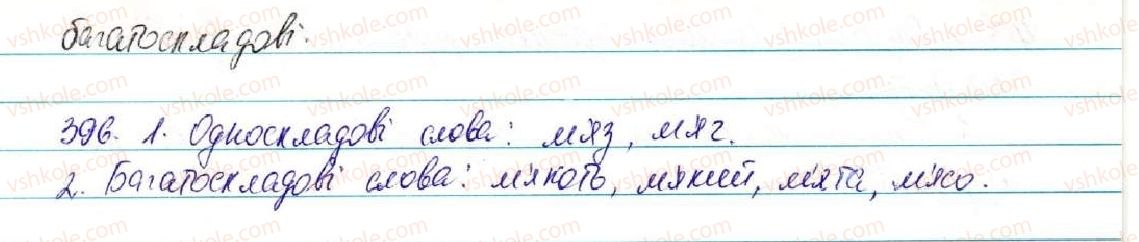 багатоскладові.
396. 1. Односкладові слова: м'яз, м'яч.
2. Багатоскладові слова: м'якоть, м'який, м'ята, м'ясо.